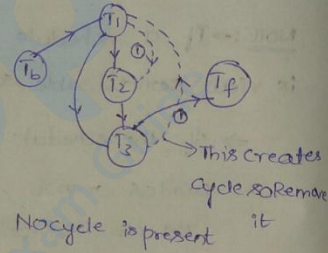 T1
1
Tb
T2
Tf
1
T3
This creates
Cycle so Remove
it
No cycle is present